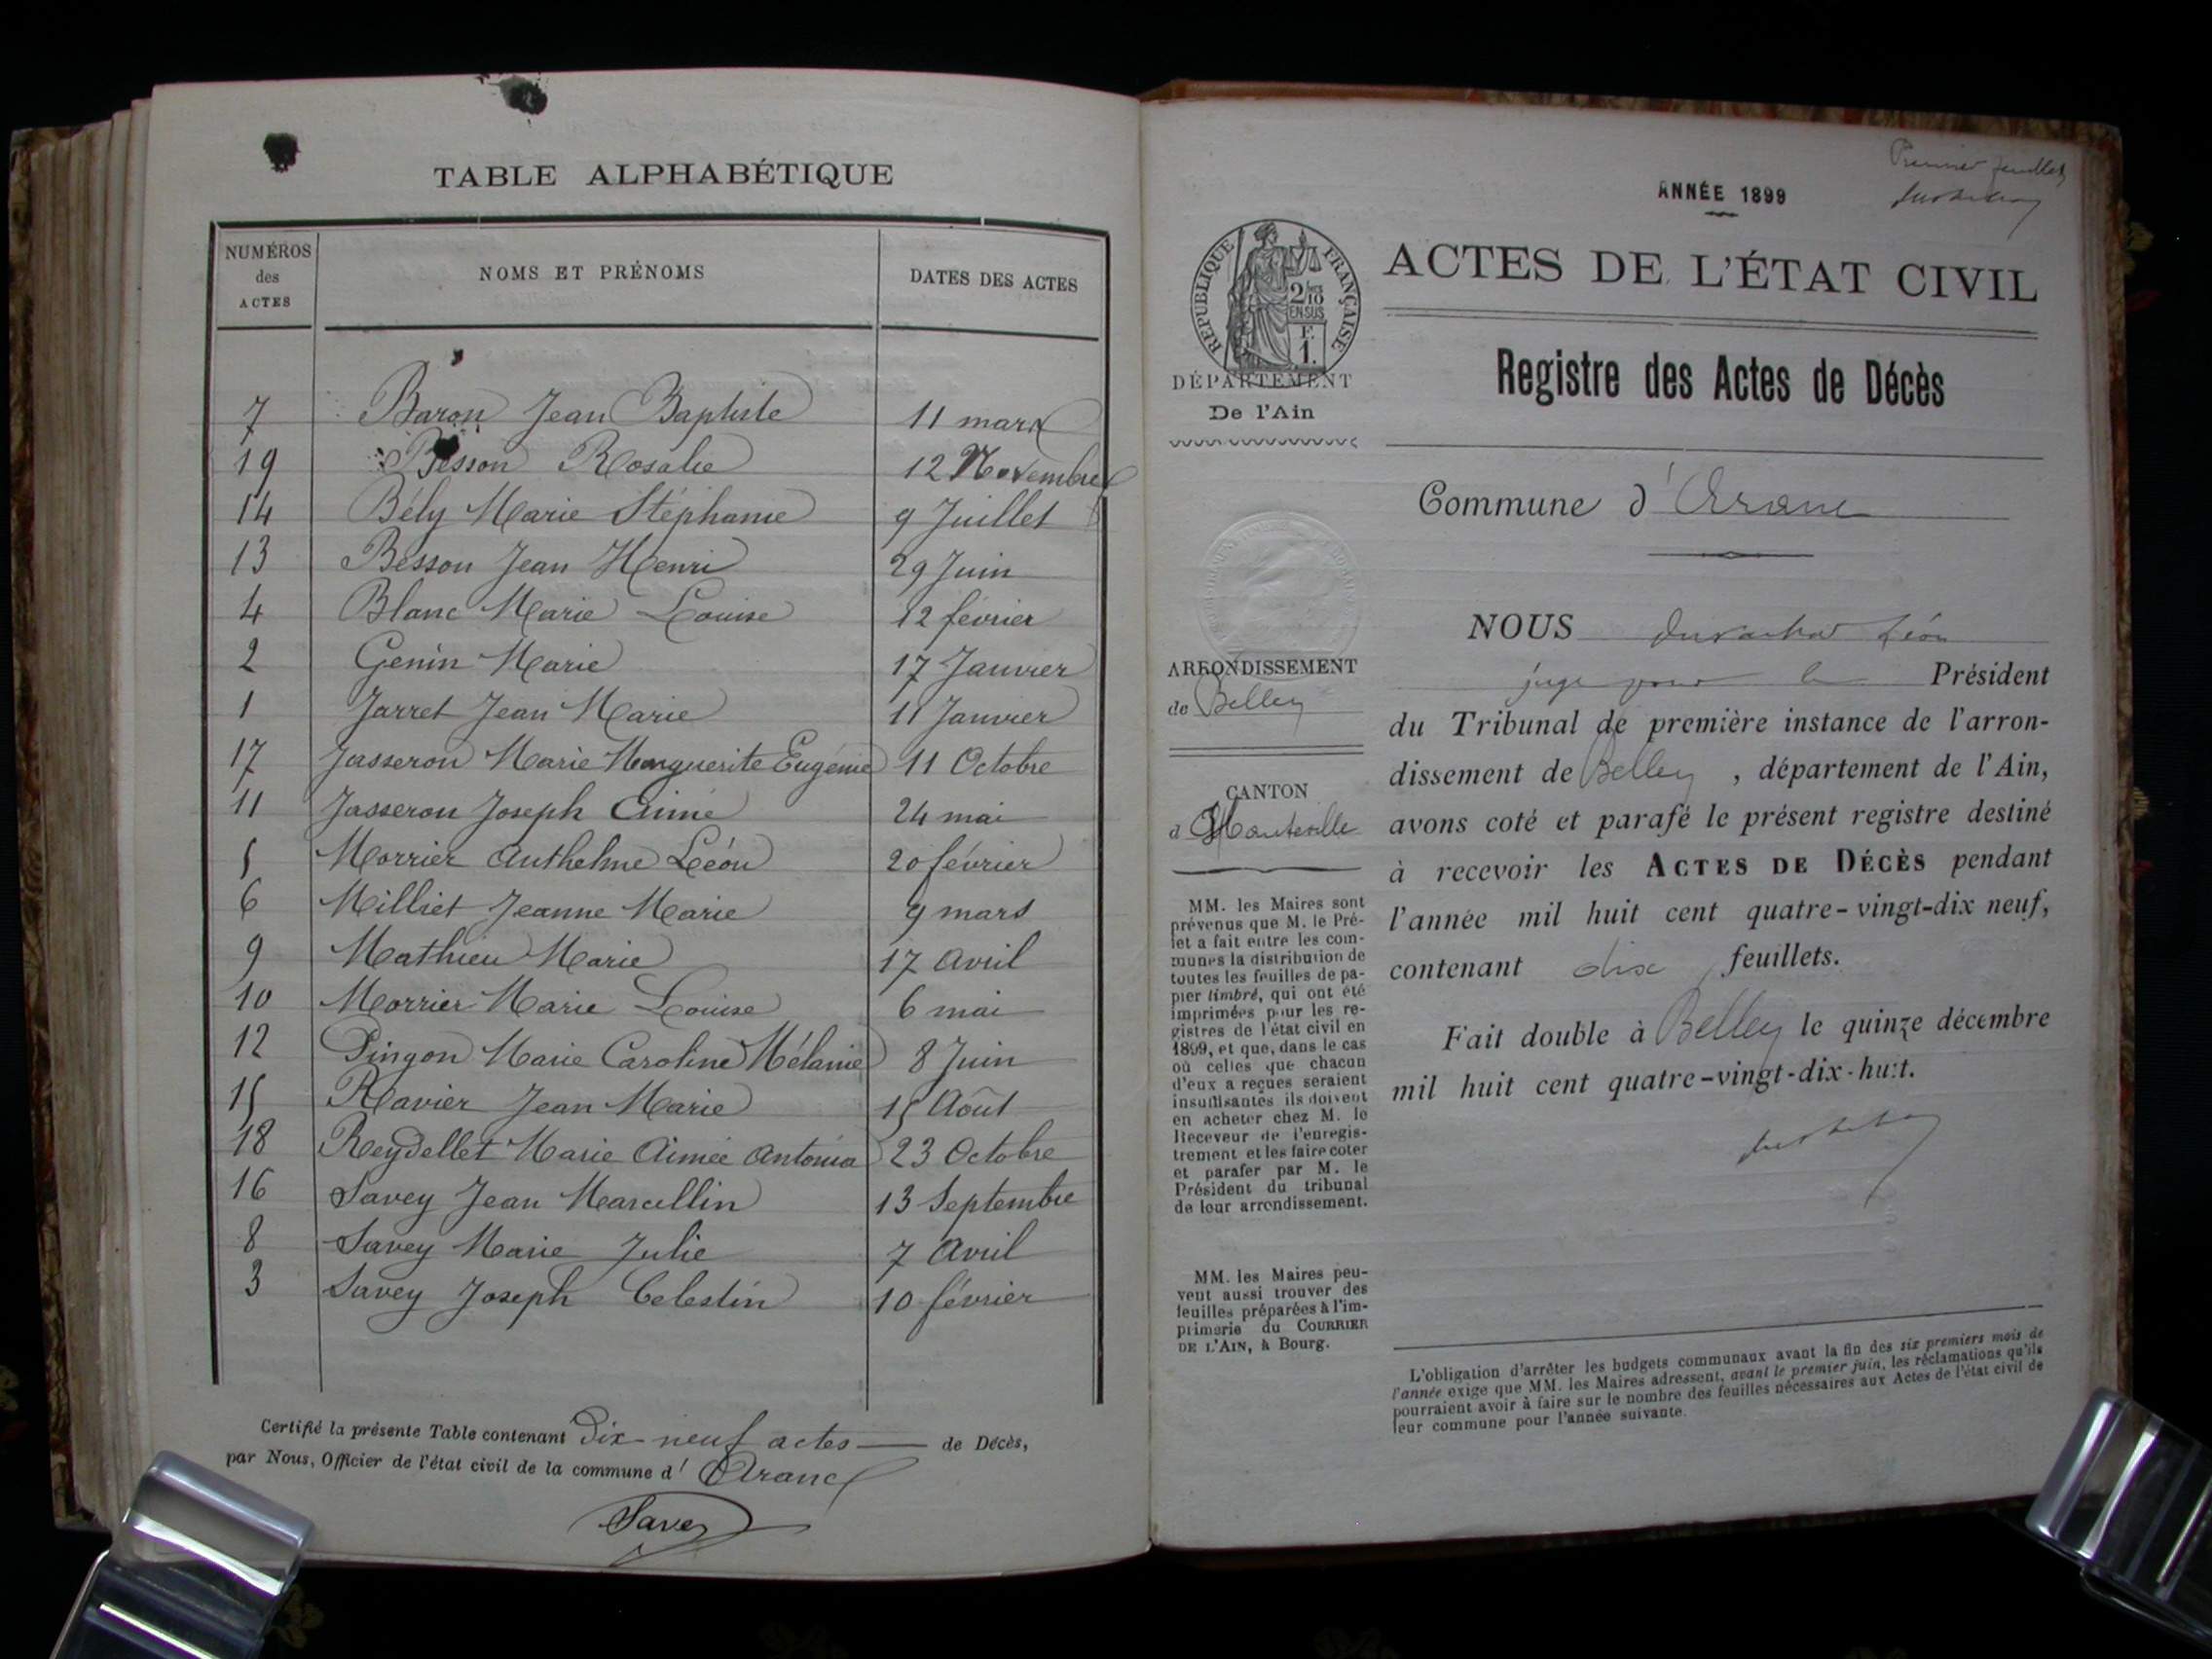 TABLE ALPHABÉTIQUE
NUMÉROS des ACTES NOMS ET PRÉNOMS DATES DES ACTES
7 Baron Jean Baptiste 11 mars
19 Besson Rosalie 12 Novembre
14 Bély Marie Stéphanie 9 Juillet
13 Besson Jean Henri 29 Juin
4 Blanc Marie Louise 12 février
2 Genin Marie 17 Janvier
1 Jarret Jean Marie 11 Janvier
17 Jasseron Marie Marguerite Eugénie 11 Octobre
11 Jasseron Joseph Aimé 24 mai
5 Morrier Anthelme Léon 20 février
6 Milliet Jeanne Marie 9 mars
9 Mathieu Marie 17 Avril
10 Morrier Marie Louise 6 mai
12 Pingon Marie Caroline Mélanie 8 Juin
15 Ravier Jean Marie 15 Août
18 Reydellet Marie Aimée Antonia 23 Octobre
16 Savey Jean Marcellin 13 Septembre
8 Savey Marie Julie 7 Avril
3 Savey Joseph Celestin 10 février
Certifié la présente Table contenant Dix-neuf actes de Décès,
par Nous, Officier de l'état civil de la commune d' Aranc
Savey
Premier feuillet
ANNÉE 1899
ACTES DE L'ÉTAT CIVIL
RÉPUBLIQUE FRANÇAISE
2/10
EN SUS
F.
1.
DÉPARTEMENT
De l'Ain
Registre des Actes de Décès
Commune d'Aranc
ARRONDISSEMENT
de Belley
CANTON
d'Hauteville
MM. les Maires sont
prévenus que M. le Pré-
fet a fait entre les com-
munes la distribution de
toutes les feuilles de pa-
pier timbré, qui ont été
imprimées pour les re-
gistres de l'état civil en
1899, et que, dans le cas
où celles que chacun
d'eux a reçues seraient
insuffisantes ils doivent
en acheter chez M. le
Receveur de l'enregis-
trement et les faire coter
et parafer par M. le
Président du tribunal
de leur arrondissement.
MM. les Maires peu-
vent aussi trouver des
feuilles préparées à l'im-
primerie du COURRIER
DE L'AIN, à Bourg.
NOUS Léon
juge pour le Président
du Tribunal de première instance de l'arron-
dissement de Belley, département de l'Ain,
avons coté et parafé le présent registre destiné
à recevoir les ACTES DE DÉCÈS pendant
l'année mil huit cent quatre-vingt-dix neuf,
contenant dix feuillets.
Fait double à Belley le quinze décembre
mil huit cent quatre-vingt-dix-huit.
L'obligation d'arrêter les budgets communaux avant la fin des six premiers mois de
l'année exige que MM. les Maires adressent, avant le premier juin, les réclamations qu'ils
pourraient avoir à faire sur le nombre des feuilles nécessaires aux Actes de l'état civil de
leur commune pour l'année suivante.